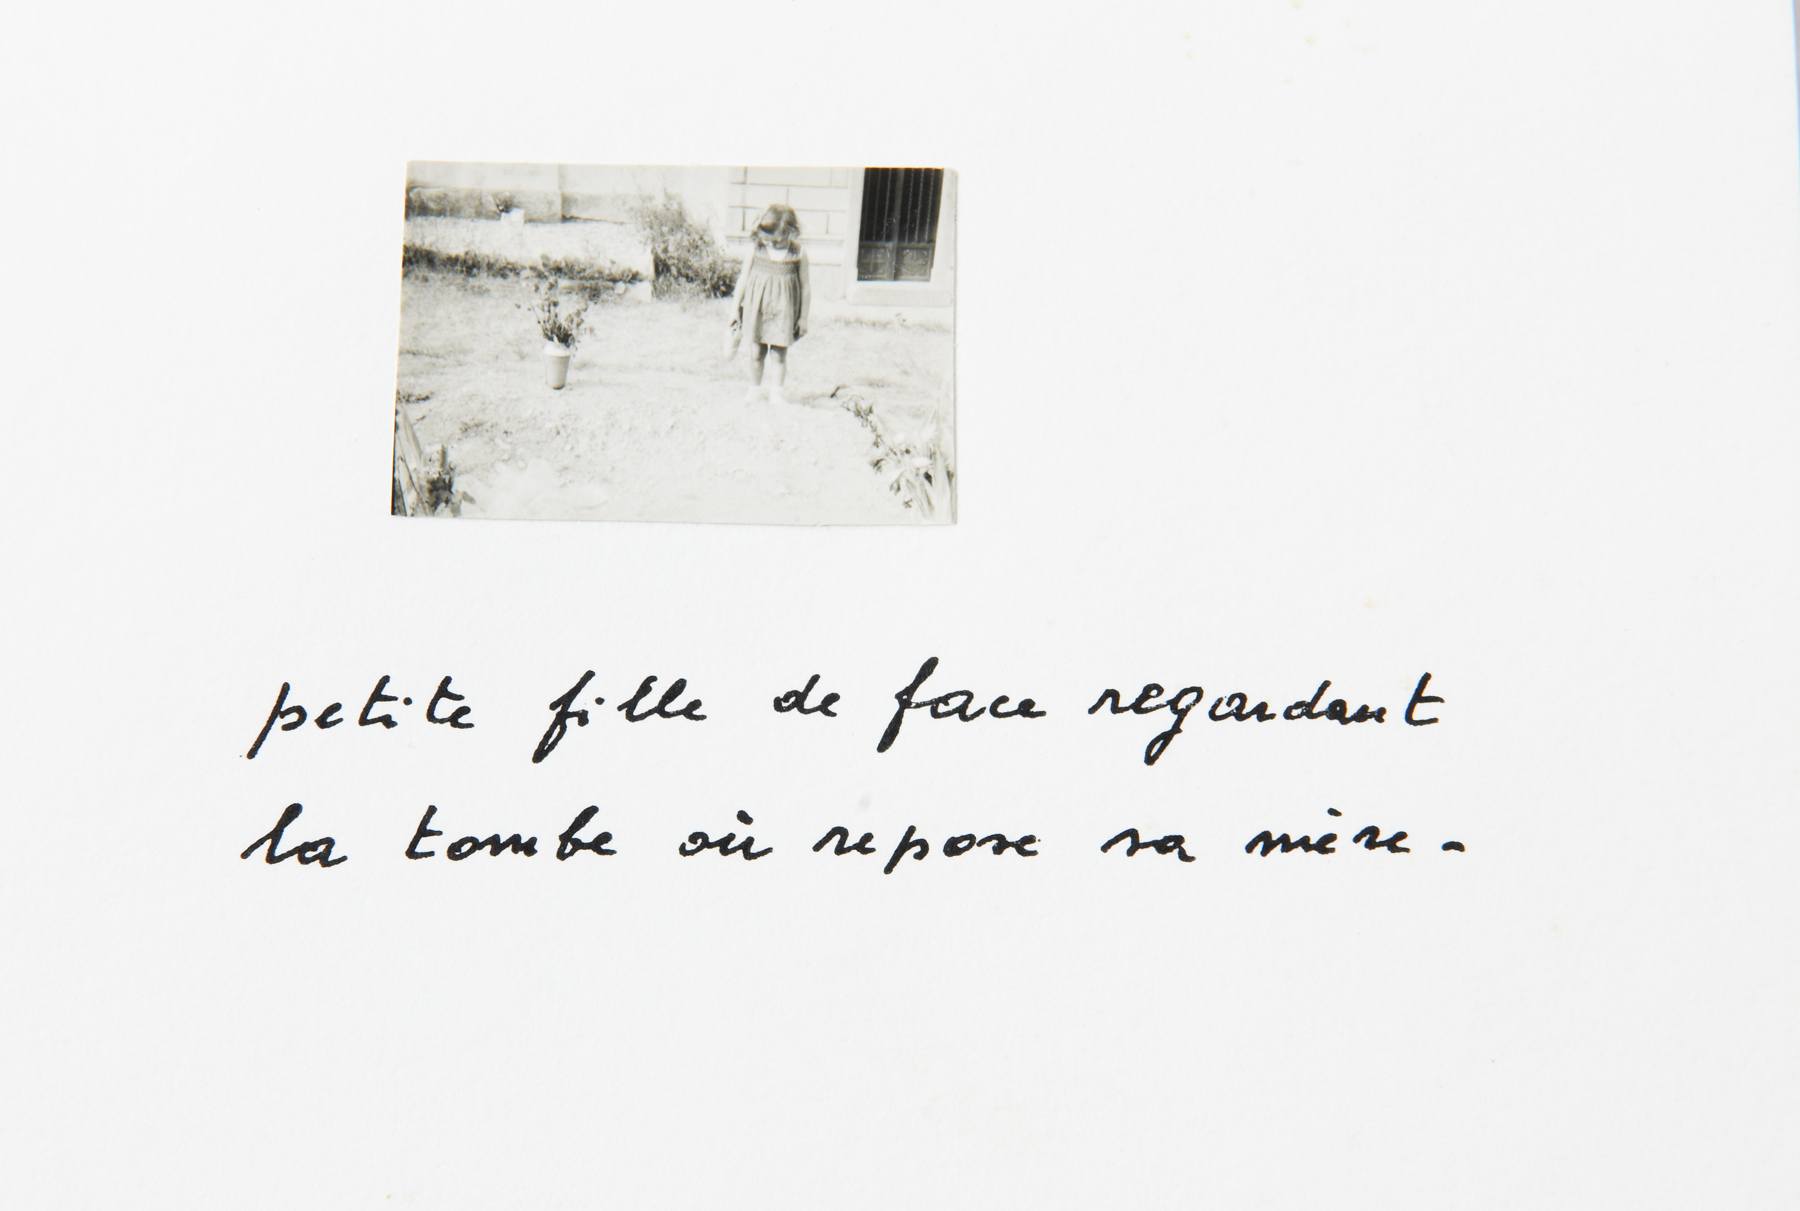 petite fille de face regardant
la tombe où repose sa mère -